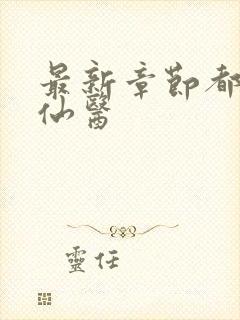 最新章節都
仙醫
靈任